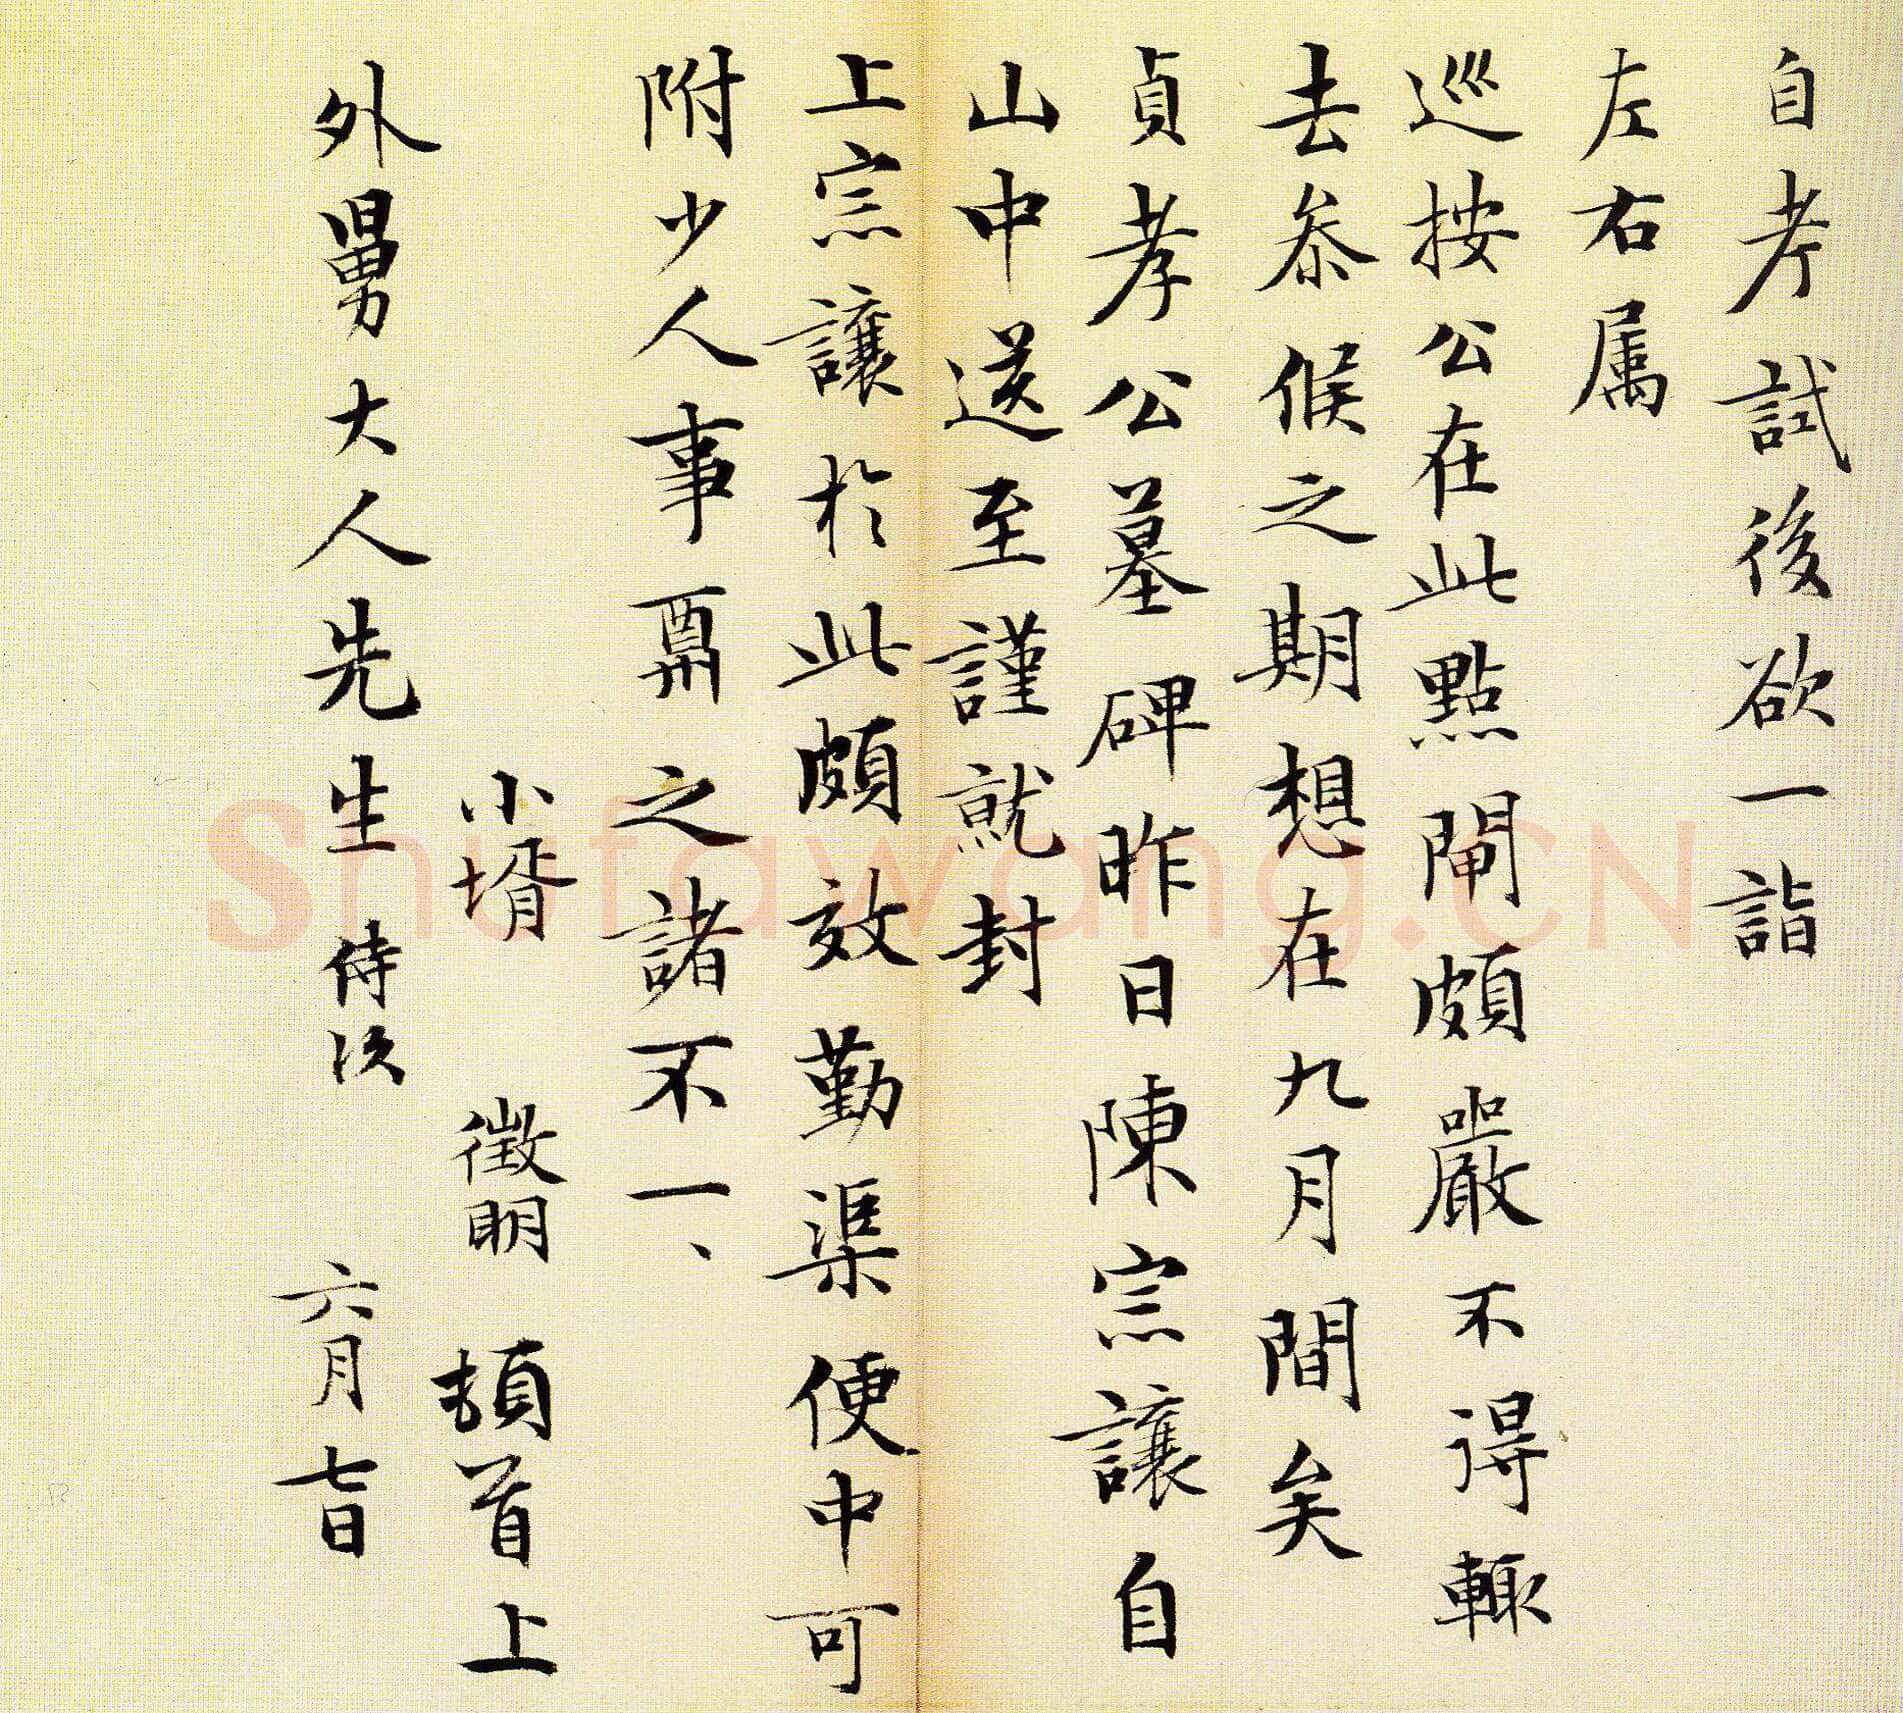 自考試後欲一詣
左右属
巡按公在此點閘頗嚴不得輙
去叅候之期想在九月間矣
貞孝公墓碑昨日陳宗讓自
山中送至謹就封
上宗讓於此頗效勤渠便中可
附少人事酬之諸不一一
小壻 徵明 頓首上
外舅大人先生侍次 六月七日
Shufawang.CN